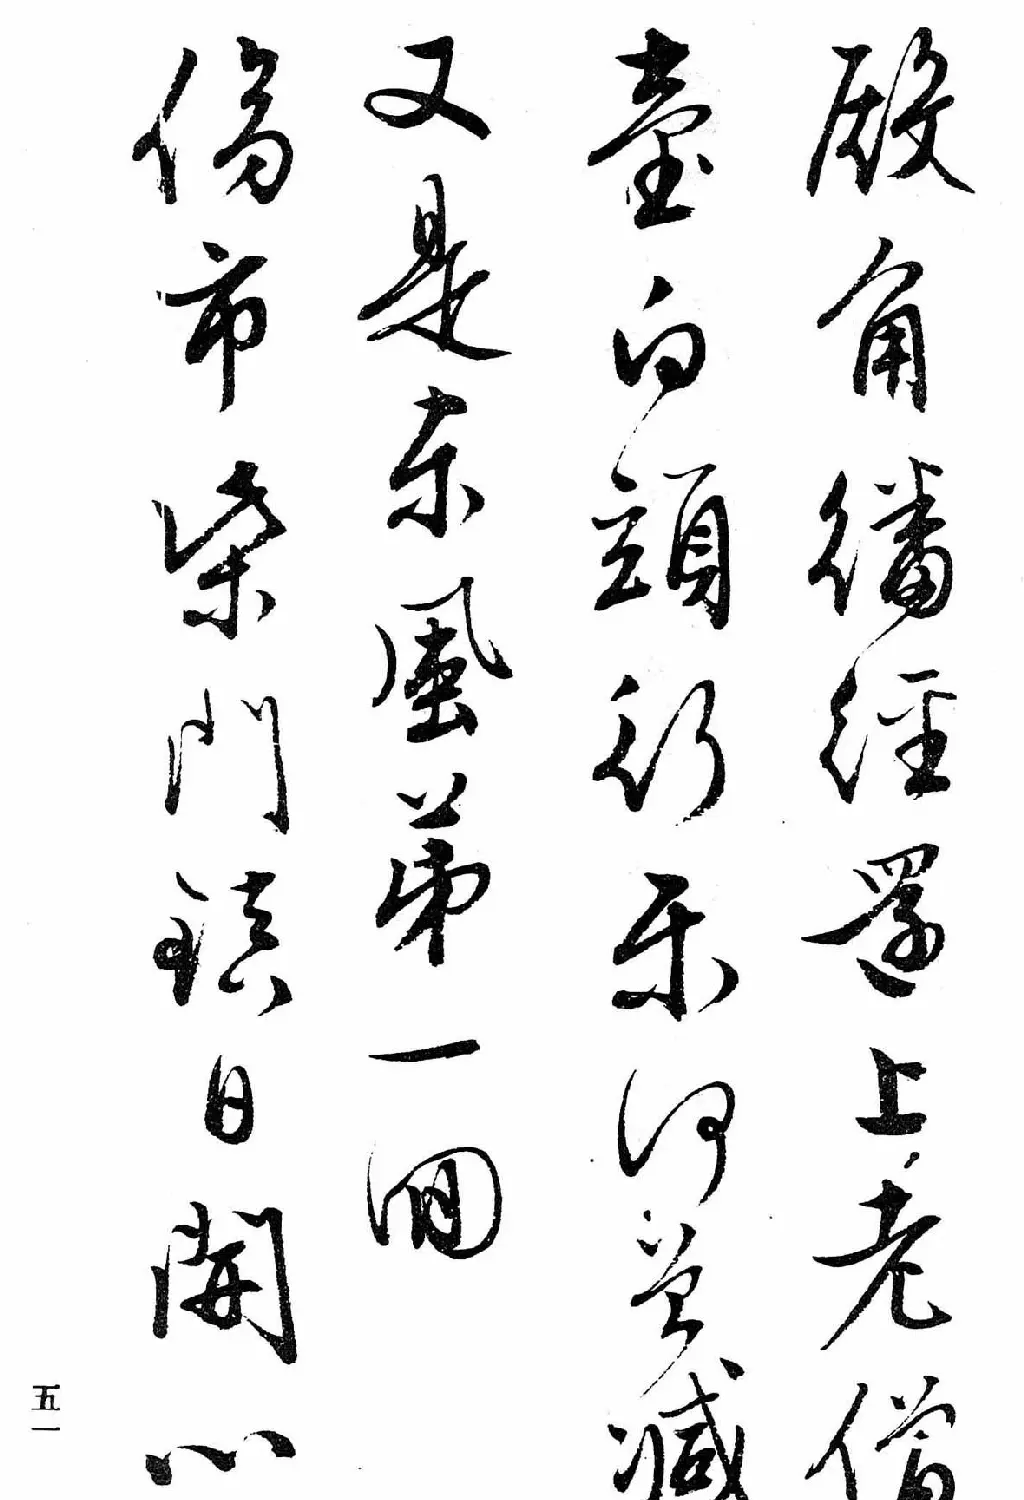 殿角繙經還上老僧
臺白頭行樂何曾減
又是東風第一回
傍市柴門鎮日開心
五一